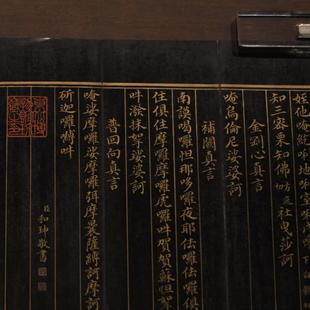 金剛心真言
唵烏倫尼娑婆訶
補闕真言
南謨喝囉怛那哆囉夜耶佉囉佉囉俱
住俱住摩囉摩囉虎囉吽賀賀蘇怛拏
吽潑抹拏娑婆訶
普回向真言
唵娑摩囉娑摩囉弭摩曩薩縛訶摩訶
斫迦囉嚩吽
臣和珅敬書